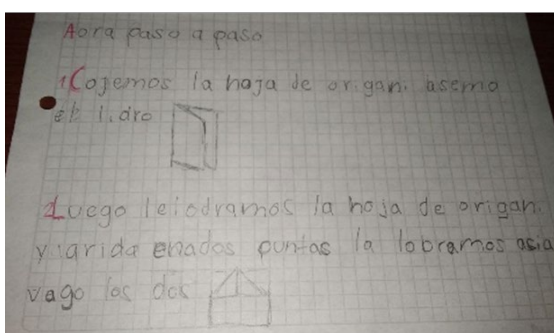 Aora paso a paso
1 Cojemos la hoja de origan. asemo
el lidro
2 Luego leiodramos la hoja de origan.
y arida enados puntas la lobramos asia
vago los dos